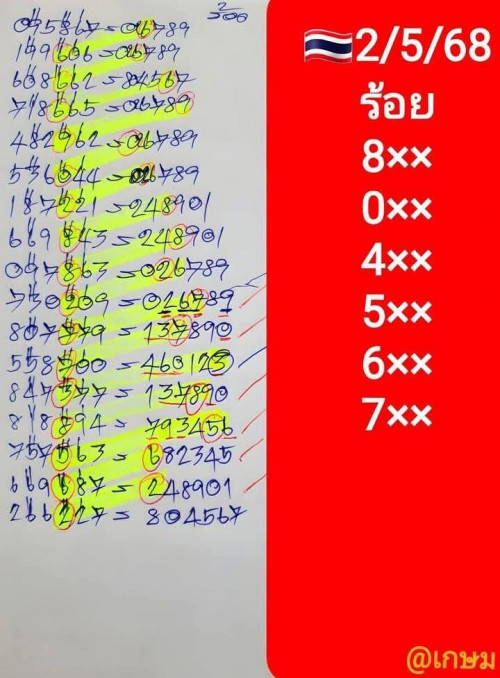 2/500
075867=026789
199606=026789
608662=804567
718665=026789
482962=026789
536044=026789
187221=248901
669843=248901
097863=026789
730209=026789
807979=137890
558900=460123
847377=137890
818894=793456
757563=682345
669687=248901
266227=804567
🇹🇭2/5/68
ร้อย
8××
0××
4××
5××
6××
7××
@เกษม